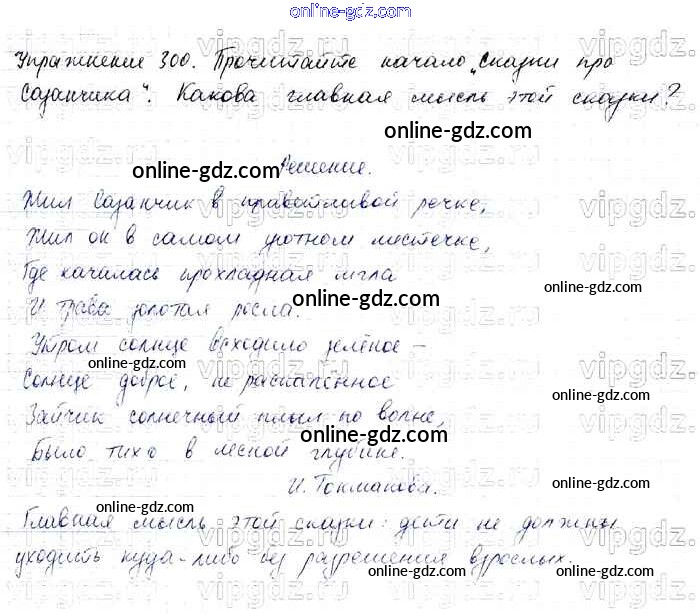 online-gdz.com
Упражнение 300. Прочитайте начало „Сказки про
Сазанчика". Какова главная мысль этой сказки?
online-gdz.com
Решение.
Жил Сазанчик в приветливой речке,
Жил он в самом уютном местечке,
Где качалась прохладная мгла
online-gdz.com
online-gdz.com
И трава золотая росла.
Утром солнце всходило зелёное –
online-gdz.com
Солнце доброе, не распалённое
online-gdz.com
Зайчик солнечный плыл по волне,
online-gdz.com
Было тихо в лесной глубине.
И. Токмакова.
online-gdz.com
online-gdz.com
Главная мысль этой сказки: дети не должны
уходить куда-либо без разрешения взрослых.
online-gdz.com
online-gdz.com
vipgdz.ru